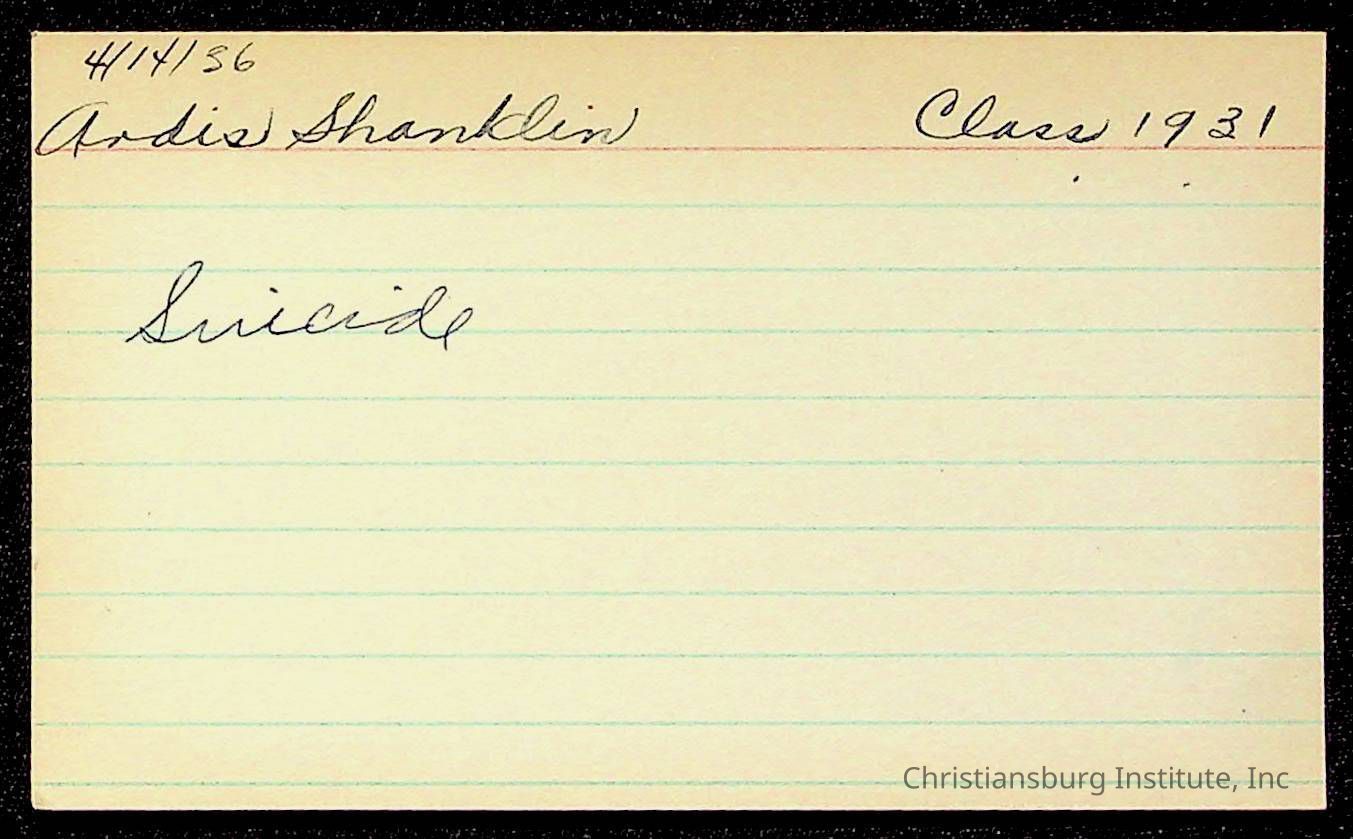 4/14/36
Ardis Shanklin Class 1931
Suicide
Christiansburg Institute, Inc